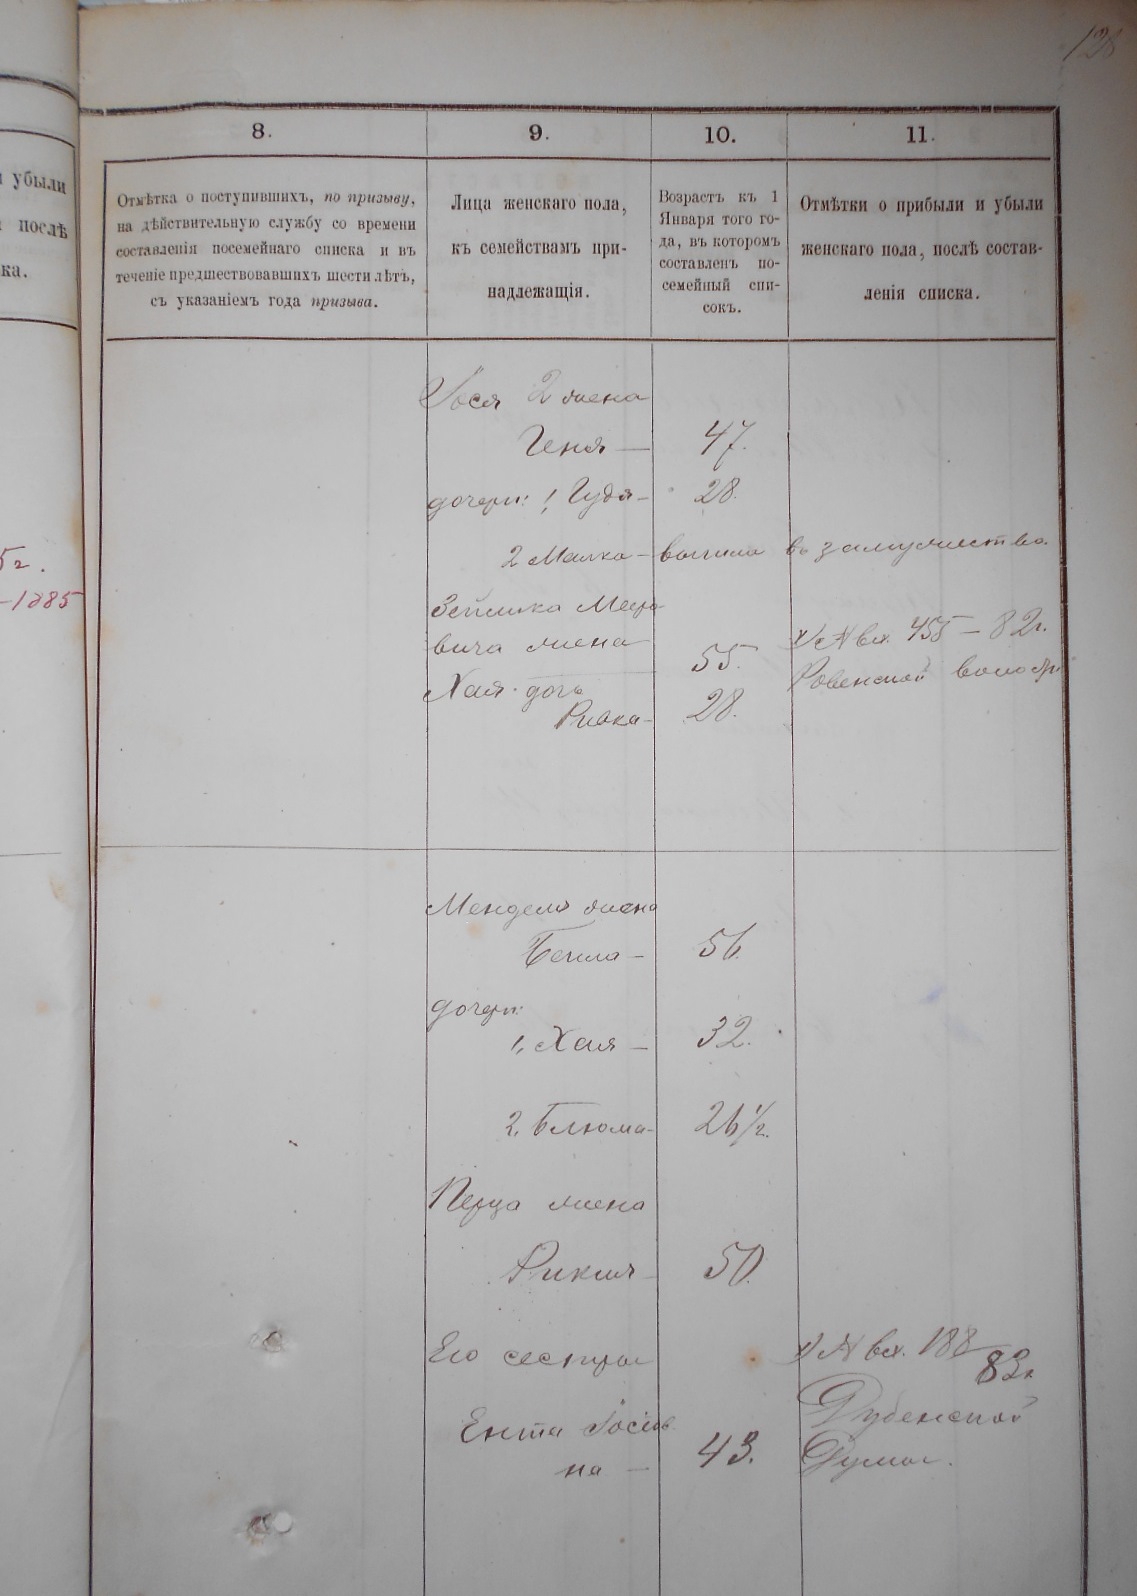 128
и убыли
послѣ
ка.
5 г.
-1885
8.
9.
10.
11.
Отмѣтка о поступившихъ, по призыву,
на дѣйствительную службу со времени
составленія посемейнаго списка и въ
теченіе предшествовавшихъ шести лѣтъ,
съ указаніемъ года призыва.
Лица женскаго пола,
къ семействамъ при-
надлежащія.
Возрастъ къ 1
Января того го-
да, въ которомъ
составленъ по-
семейный спи-
сокъ.
Отмѣтки о прибыли и убыли
женскаго пола, послѣ состав-
ленія списка.
Іося 2 жена
Геня — 47.
дочери: 1, Гудя - 28.
2 Малка - вышла въ замужество.
Зейлика Меро
вича жена 55.
Хая дочь
Ривка - 28.
№ вх. 455 - 82 г.
Ровенской волости
Менделя жена
Бейла - 56.
дочери:
1, Хая - 32.
2, Блюма - 26 1/2.
Перца жена
Рикля - 50.
Его сестра
Ента Іосіов
на - 43.
№ вх. 188
83 г.
Дубенской
Думы.